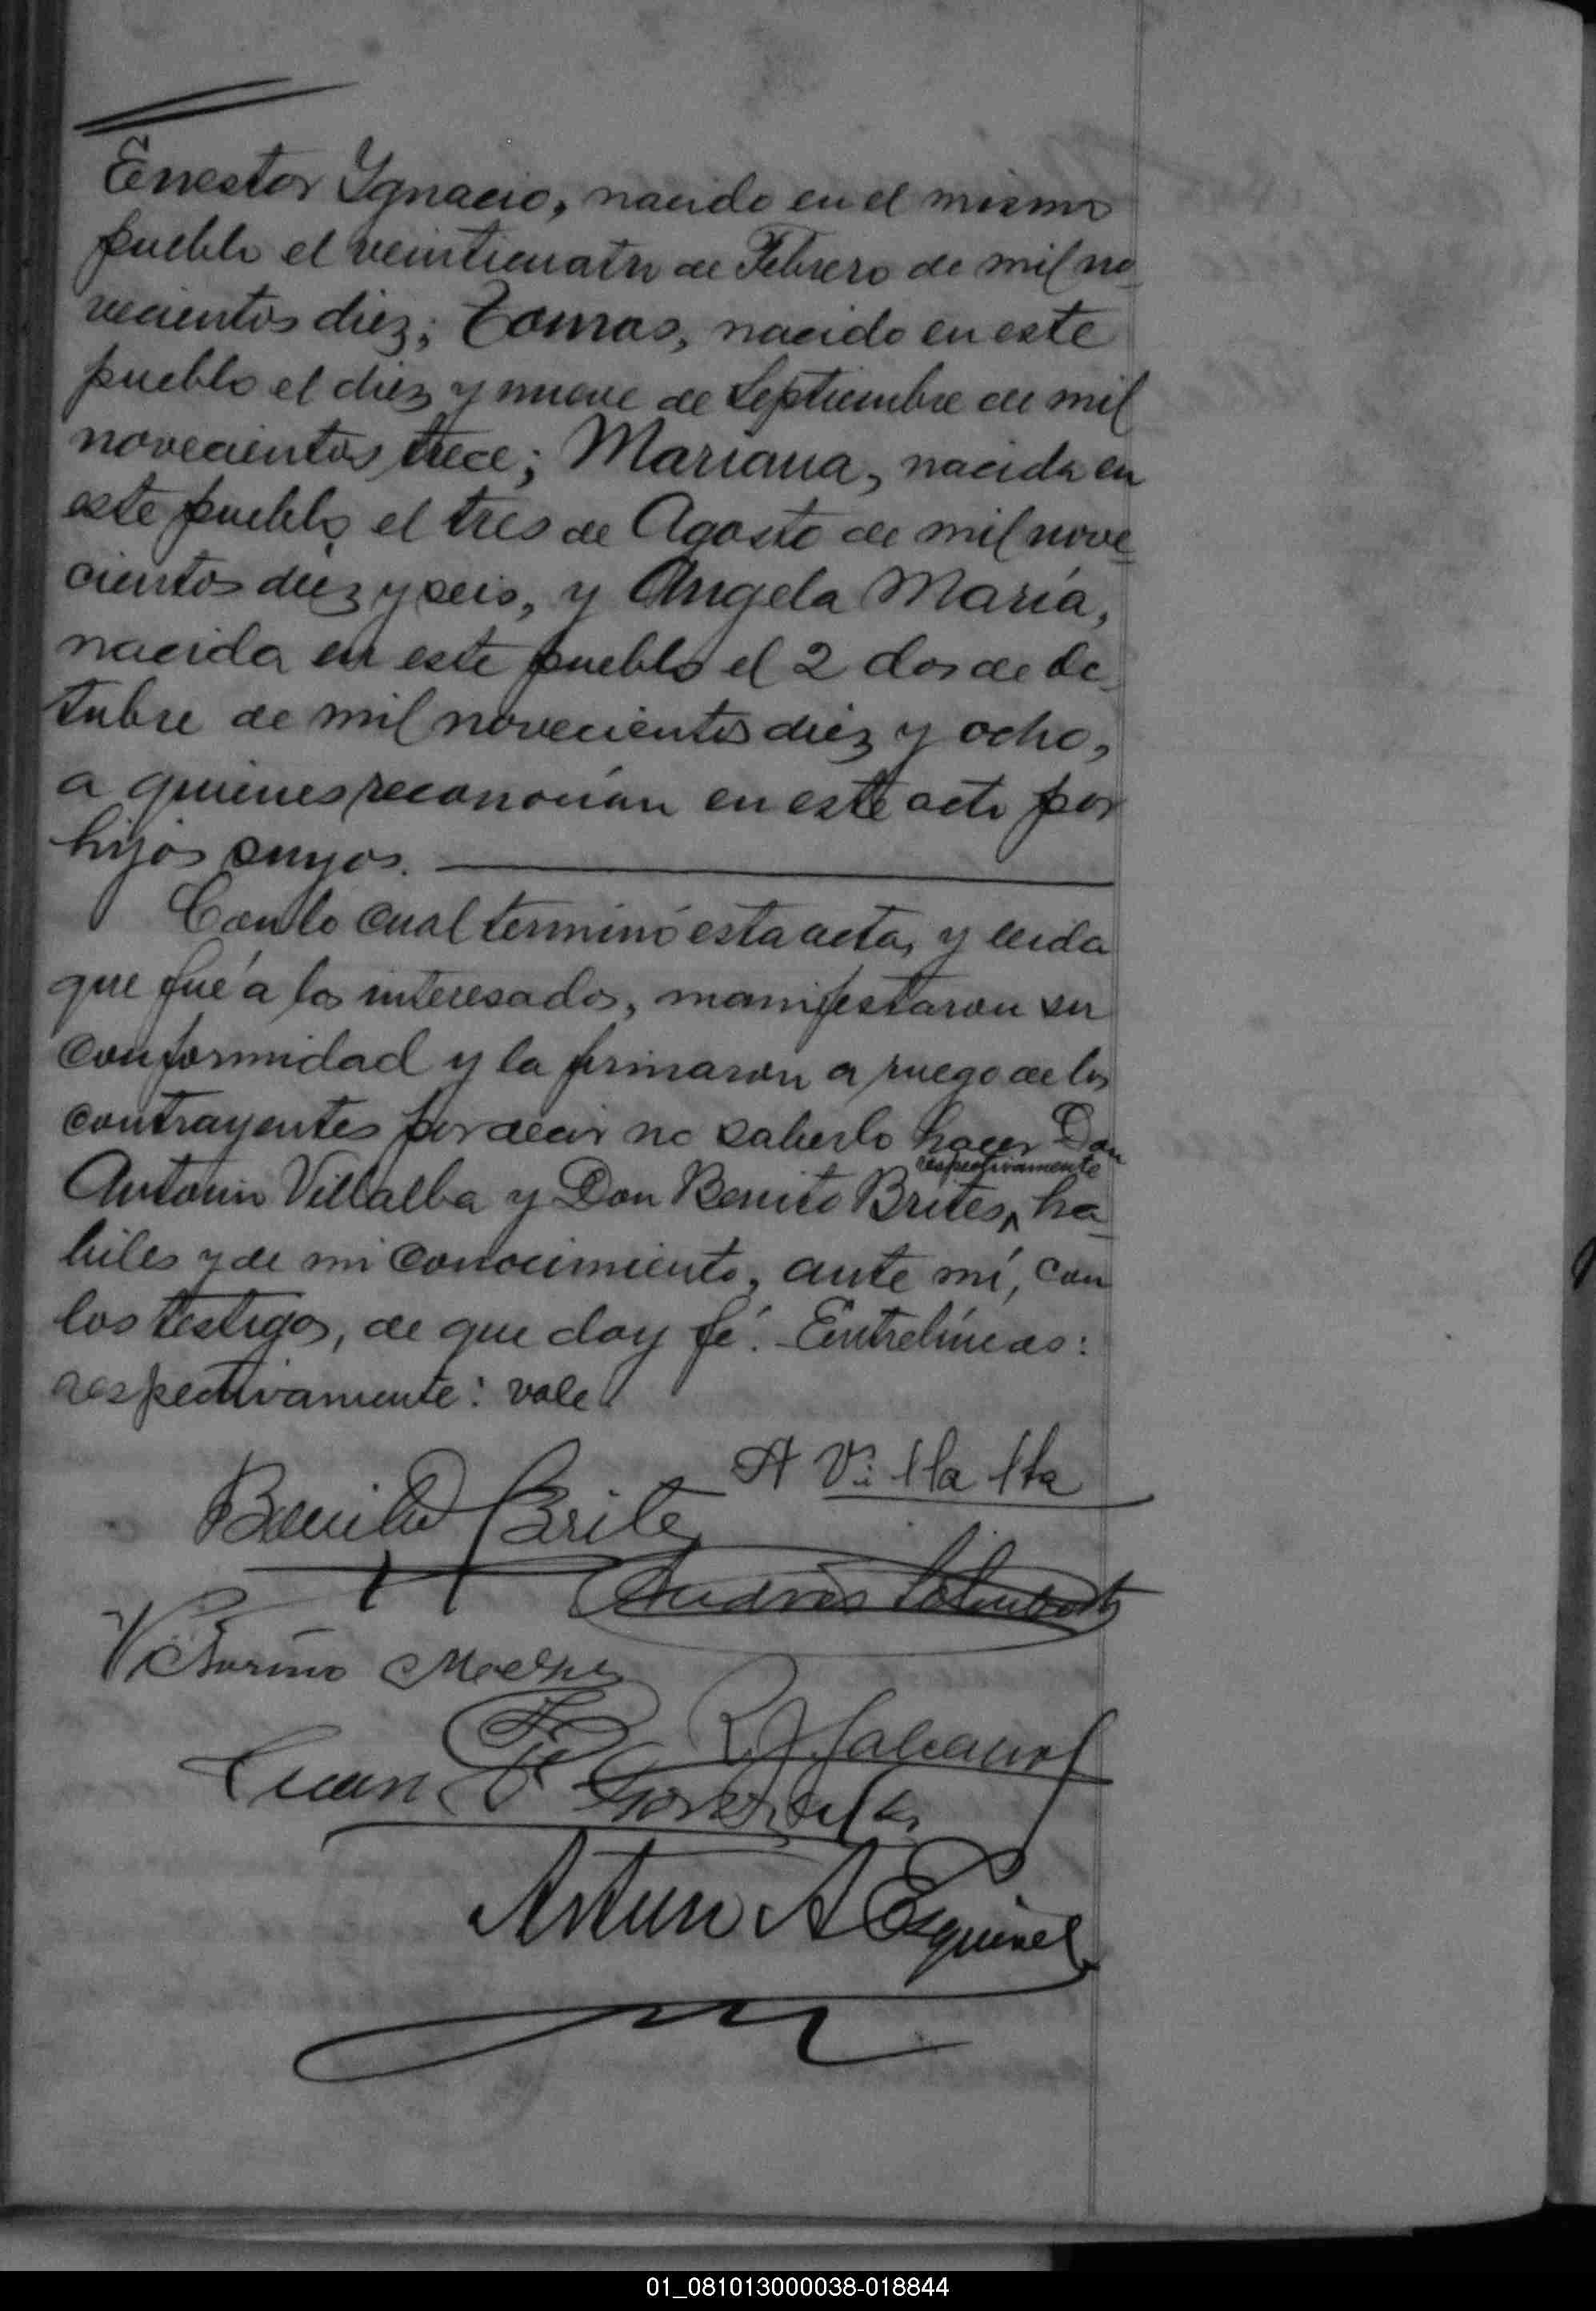 Ernestor Ygnacio, nacido en el mismo
pueblo el veinticuatro de Febrero de mil no-
vecientos diez; Tomas, nacido en este
pueblo el diez y nueve de Septiembre de mil
novecientos trece; Mariana, nacida en
este pueblo el tres de Agosto de mil nove-
cientos diez y seis, y Angela María,
nacida en este pueblo el 2 dos de Oc-
tubre de mil novecientos diez y ocho,
a quienes reconocían en este acto por
hijos suyos.
Con lo cual terminó esta acta, y leida
que fué a los interesados, manifestaron su
conformidad y la firmaron a ruego de los
contrayentes por decir no saberlo hacer Don
respectivamente
Antonio Villalba y Don Benito Brites, ha-
biles y de mi conocimiento, ante mí, con
los testigos, de que doy fé. Entrelíneas:
respectivamente: vale
A Villalba
Benito Brites
Andrés
Victorino
Juan P González
Arturo A Esquivel
01_081013000038-018844